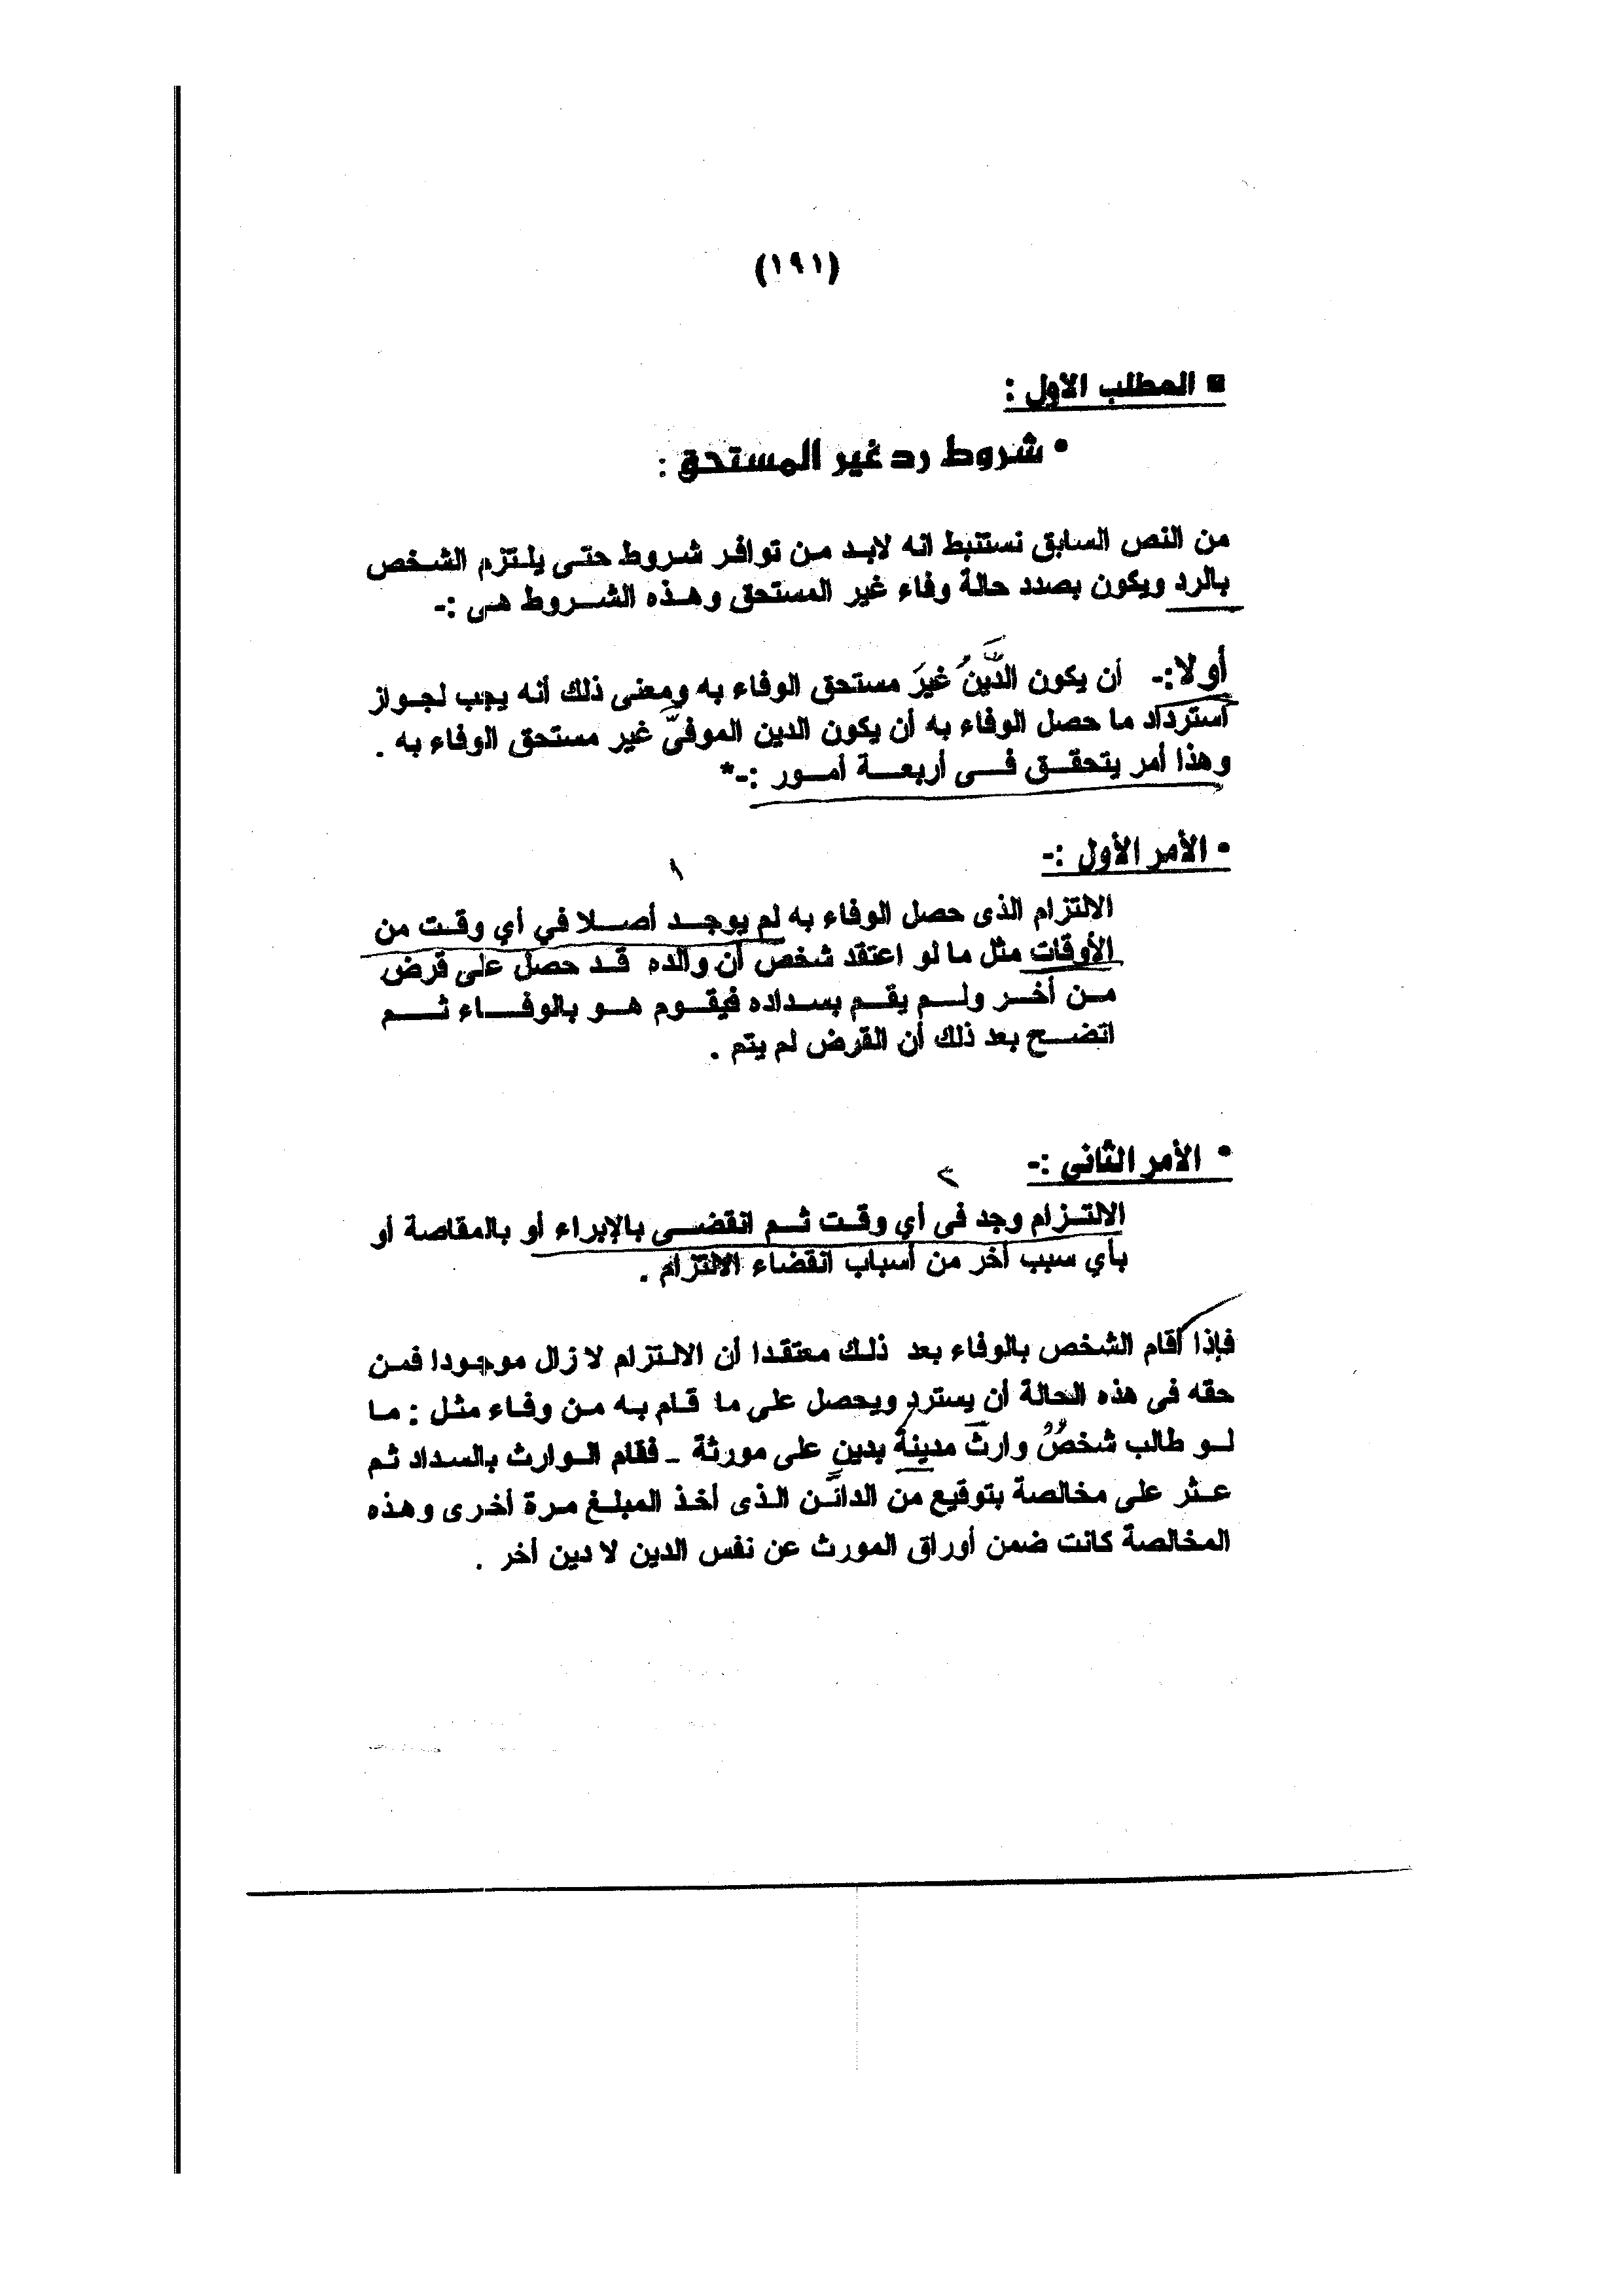 (١٩١)
▪ المطلب الأول :
• شروط رد غير المستحق :
من النص السابق نستنبط انه لابد من توافر شروط حتى يلتزم الشخص
بالرد ويكون بصدد حالة وفاء غير المستحق وهذه الشروط هى :-
أولا:- أن يكون الدَّينُ غيرَ مستحق الوفاء به ومعنى ذلك أنه يجب لجواز
استرداد ما حصل الوفاء به أن يكون الدين الموفىَّ غير مستحق الوفاء به .
وهذا أمر يتحقق فى أربعة أمور :-*
• الأمر الأول :-
١
الالتزام الذى حصل الوفاء به لم يوجد أصلا في أي وقت من
الأوقات مثل ما لو اعتقد شخص أن والده قد حصل على قرض
من أخر ولم يقم بسداده فيقوم هو بالوفاء ثم
اتضح بعد ذلك أن القرض لم يتم .
• الأمر الثانى :-
٢
الالتزام وجد فى أي وقت ثم انقضى بالإبراء أو بالمقاصة أو
بأي سبب أخر من أسباب انقضاء الالتزام .
فإذا أقام الشخص بالوفاء بعد ذلك معتقدا أن الالتزام لا زال موجودا فمن
حقه فى هذه الحالة أن يسترد ويحصل على ما قام به من وفاء مثل : ما
لو طالب شخصٌ وارث مدينة بدين على مورثة - فقام الوارث بالسداد ثم
عثر على مخالصة بتوقيع من الدائن الذى أخذ المبلغ مرة أخرى وهذه
المخالصة كانت ضمن أوراق المورث عن نفس الدين لا دين أخر .